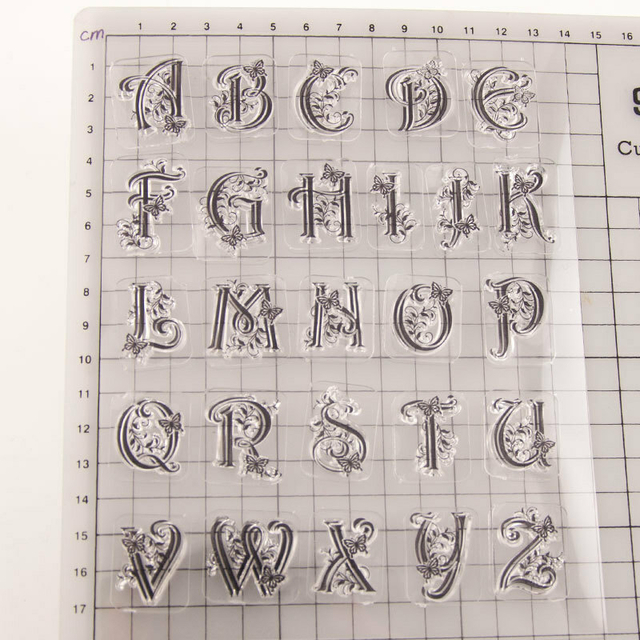 cm
1 2 3 4 5 6 7 8 9 10 11 12 13 14 15 16
1
2
3
4
5
6
7
8
9
10
11
12
13
14
15
16
17
A B C D E
F G H I J K
L M N O P
Q R S T U
V W X Y Z
Cu